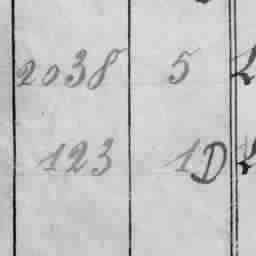 2038 5
123 1D